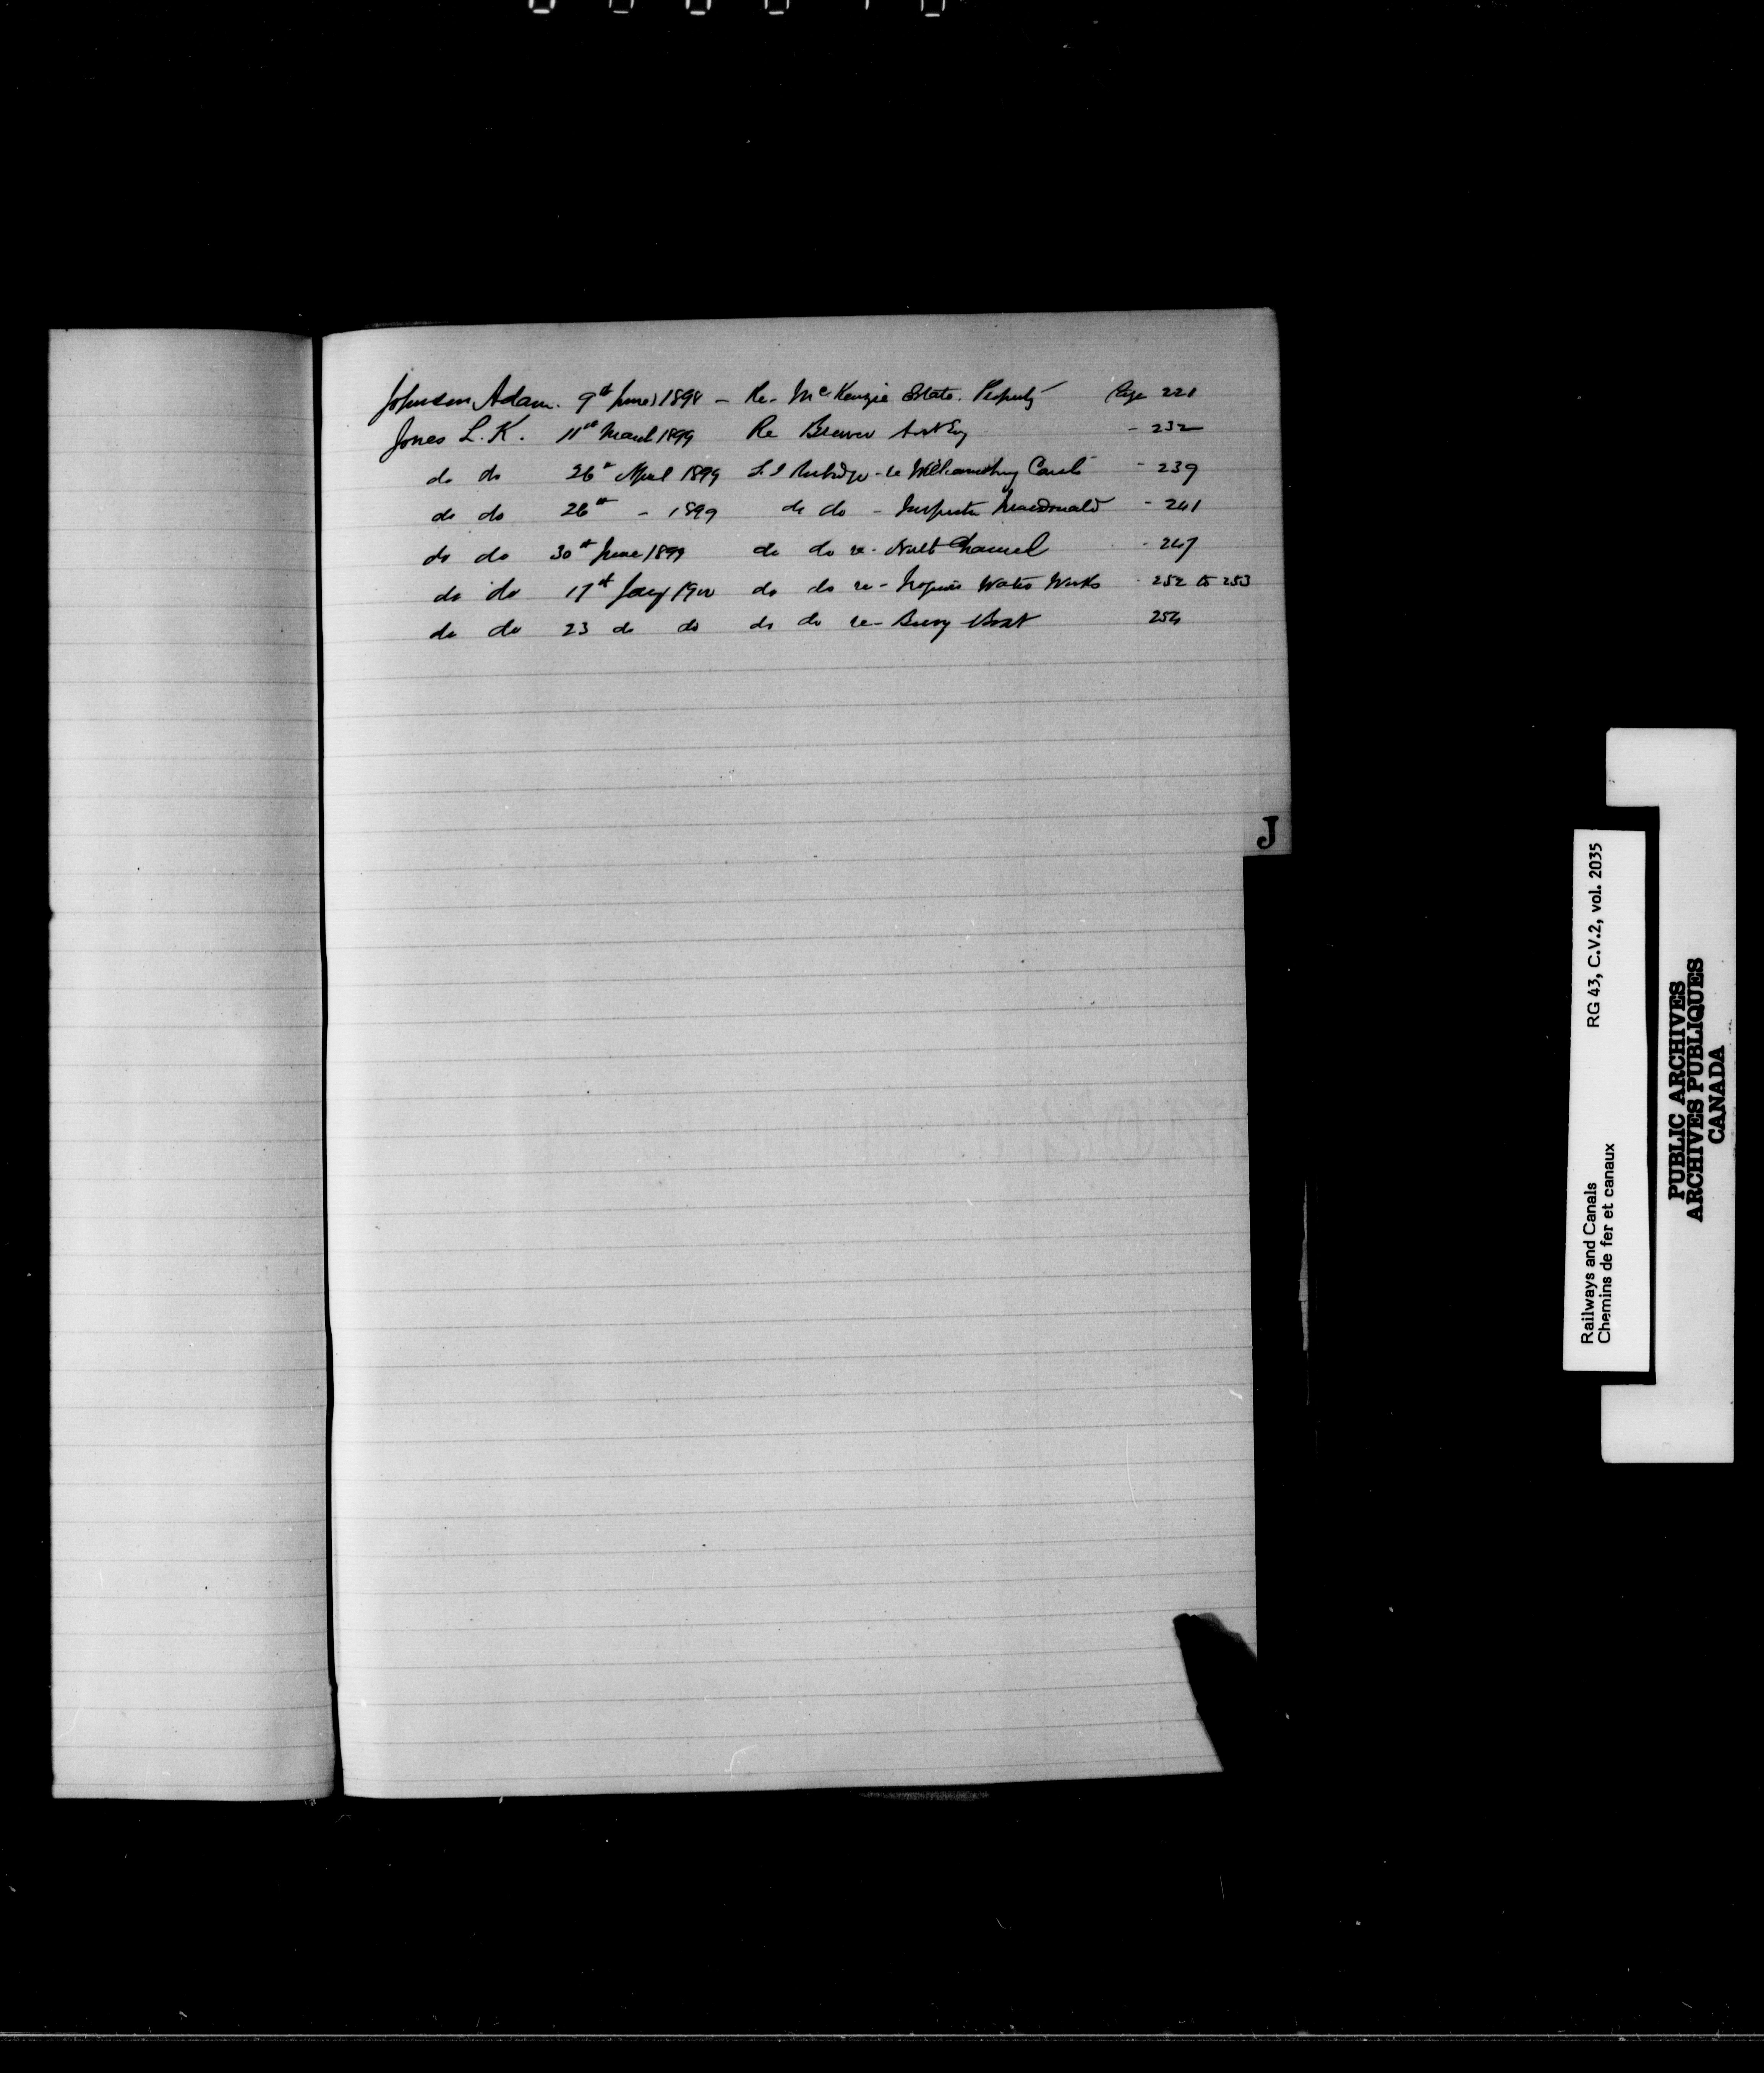 Johnson Adam. 9th June 1898 - Re. McKenzie Estate. Property Page 221
Jones L. K. 11th March 1899 Re Brewer - 232
do do 26th April 1899 Rubidge - re Williamsburg Canal - 239
do do 26th - 1899 do do - Inspector Macdonald - 241
do do 30th June 1899 do do re - North Channel - 247
do do 17th Jany 1900 do do re - Iroquois Water Works - 252 to 253
do do 23 do do do do re - Buoy Boat 254
J
Railways and Canals RG 43, C.V.2, vol. 2035
Chemins de fer et canaux
PUBLIC ARCHIVES
ARCHIVES PUBLIQUES
CANADA